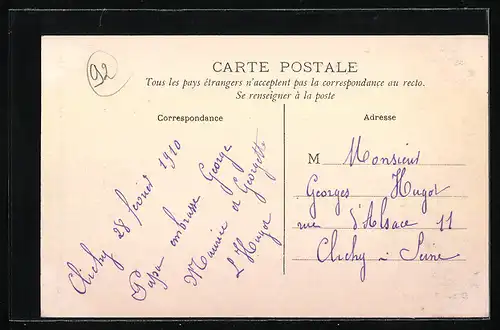 92
CARTE POSTALE
Tous les pays étrangers n'acceptent pas la correspondance au recto.
Se renseigner à la poste
Correspondance
Clichy 28 février 1910
Papa embrasse George
Maurice et Georgette
L Hugot
Adresse
M Monsieur
Georges Hugot
rue d'Alsace 11
Clichy - Seine